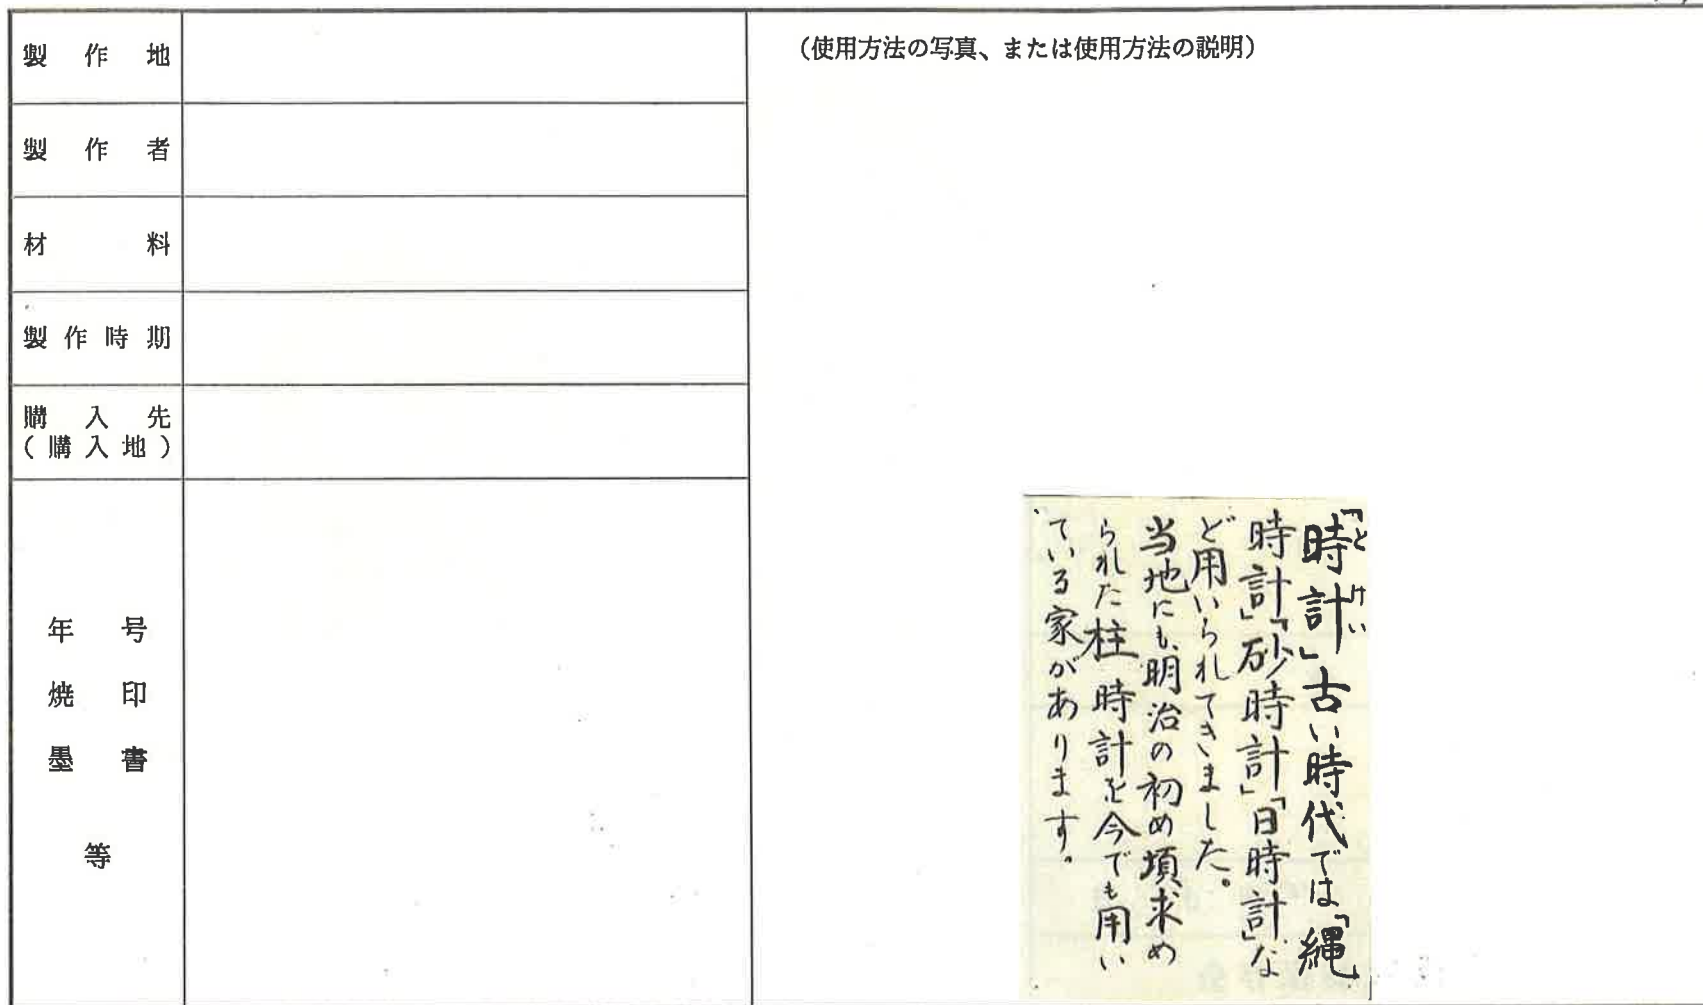 製作地
製作者
材料
製作時期
購入先
(購入地)
年号
焼印
墨書
等
(使用方法の写真、または使用方法の説明)
「時計」古い時代では「縄
とけい
時計」「砂時計」「日時計」な
ど用いられてきました。
当地にも明治の初め頃求め
られた柱時計を今でも用い
ている家があります。